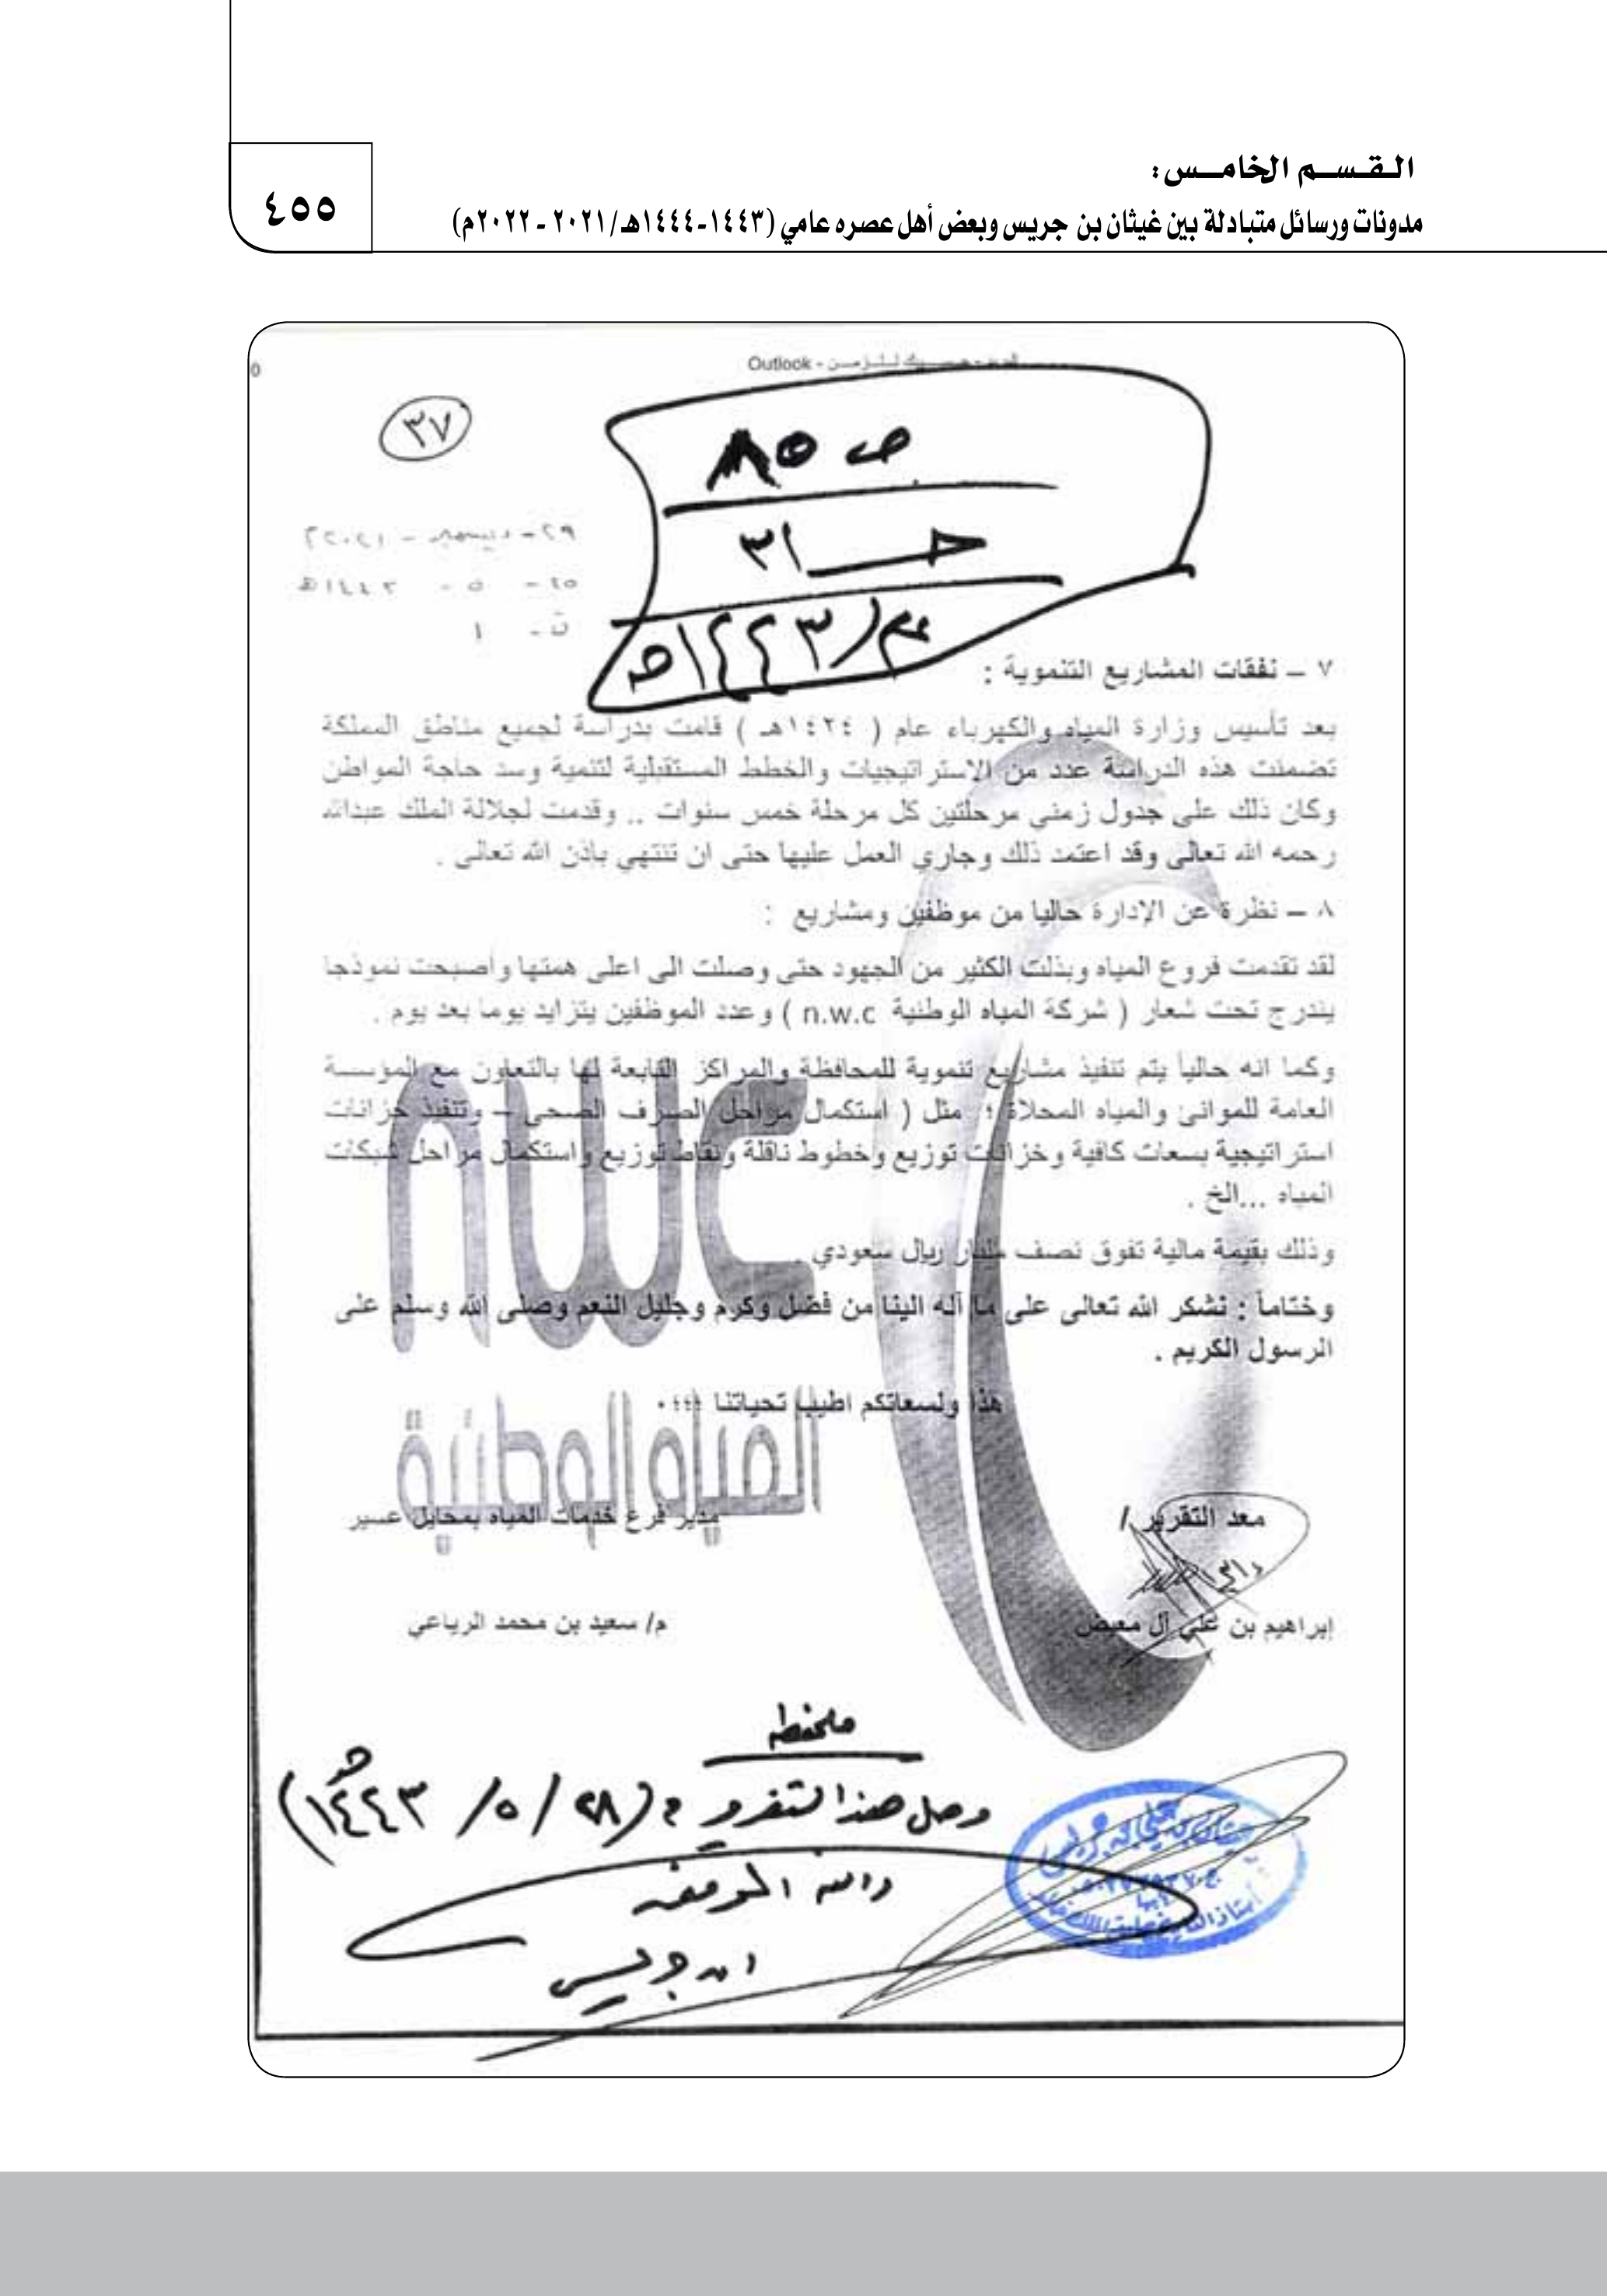 القسم الخامس:
مدونات ورسائل متبادلة بين غيثان بن جريس وبعض أهل عصره عامي (١٤٤٣-١٤٤٤هـ/٢٠٢١ - ٢٠٢٢م)
٤٥٥
Outlook -
٣٧
ص ٨٥
حـ ٣١
١٤٤٣هـ
٢٩ - ديسمبر - ٢٠٢١
٢٥ - ٥ - ١٤٤٣هـ
ن - ١
٧ – نفقات المشاريع التنموية :
بعد تأسيس وزارة المياه والكهرباء عام ( ١٤٢٤هـ ) قامت بدراسة لجميع مناطق المملكة
تضمنت هذه الدراسة عدد من الاستراتيجيات والخطط المستقبلية لتنمية وسد حاجة المواطن
وكان ذلك على جدول زمني مرحلتين كل مرحلة خمس سنوات .. وقدمت لجلالة الملك عبدالله
رحمه الله تعالى وقد اعتمد ذلك وجاري العمل عليها حتى ان تنتهي بإذن الله تعالى .
٨ – نظرة عن الإدارة حاليا من موظفين ومشاريع :
لقد تقدمت فروع المياه وبذلت الكثير من الجهود حتى وصلت الى اعلى همتها واصبحت نموذجا
يندرج تحت شعار ( شركة المياه الوطنية n.w.c ) وعدد الموظفين يتزايد يوما بعد يوم .
وكما انه حالياً يتم تنفيذ مشاريع تنموية للمحافظة والمراكز التابعة لها بالتعاون مع المؤسسة
العامة للموانئ والمياه المحلاة ؛ مثل ( استكمال مراحل الصرف الصحي – وتنفيذ خزانات
استراتيجية بسعات كافية وخزانات توزيع وخطوط ناقلة ونقاط توزيع واستكمال مراحل شبكات
المياه ...الخ .
وذلك بقيمة مالية تفوق نصف مليار ريال سعودي .
وختاماً : نشكر الله تعالى على ما آله الينا من فضل وكرم وجليل النعم وصلى الله وسلم على
الرسول الكريم .
هذا ولسعاتكم اطيب تحياتنا ؛؛؛٠
nwc
المياه الوطنية
معد التقرير /
مدير فرع خدمات المياه بمحايل عسير
إبراهيم بن علي آل معيض
م/ سعيد بن محمد الرياعي
ملحظه
وصل هذا التقرير في (٢٨ / ٥ / ١٤٤٣هـ)
والله الموفق
ابن جريس